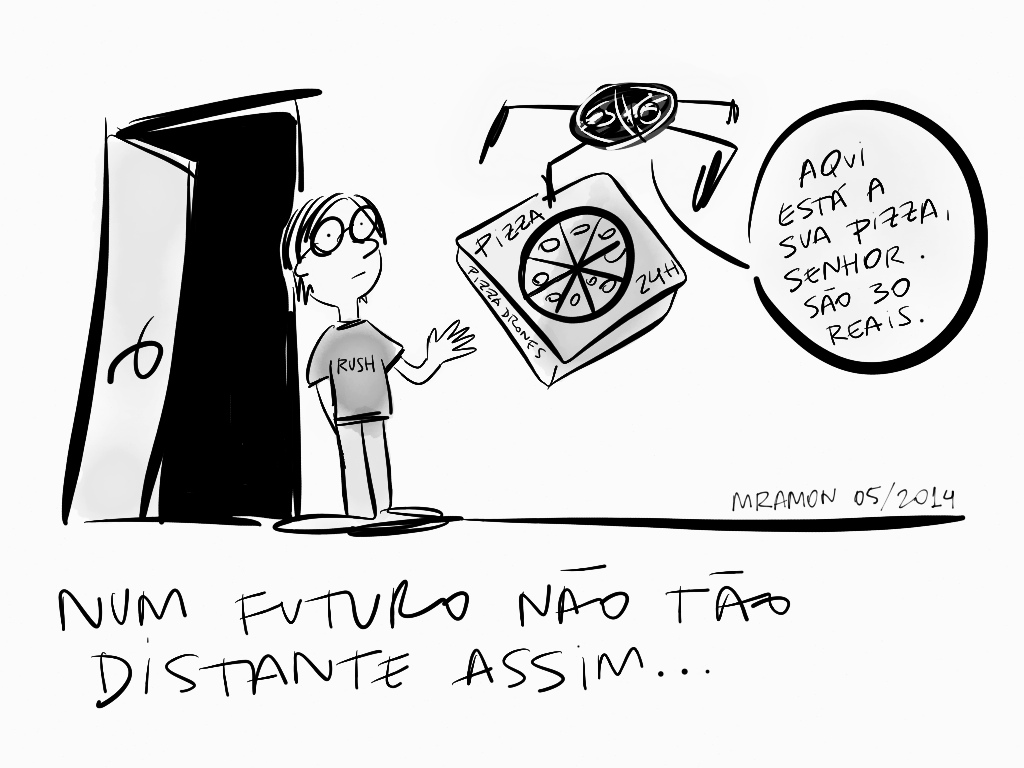 PIZZA
24H
PIZZA DRONES
RUSH
AQUI
ESTÁ A
SUA PIZZA,
SENHOR.
SÃO 30
REAIS.
MRAMON 05/2014
NUM FUTURO NÃO TÃO
DISTANTE ASSIM...